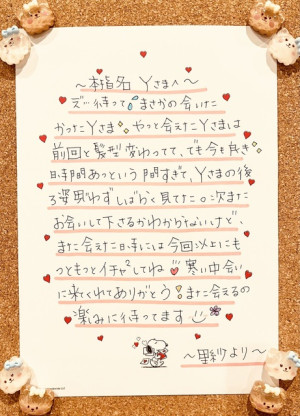 〜本指名 Yさまへ〜
ズーッ待ってまさかの会いた
かったYさま やっと会えたYさまは
前回と髪型変わってて、でも今も良き
時間あっという間すぎて、Yさまの後
ろ姿思わずしばらく見てた。次また
お会いして下さるかわからないけど、
また会えた日時には今回以上にも
っともっとイチャ²してね 寒い中会い
に来てくれてありがとう!また会えるの
楽しみに待ってます
〜里紗より〜